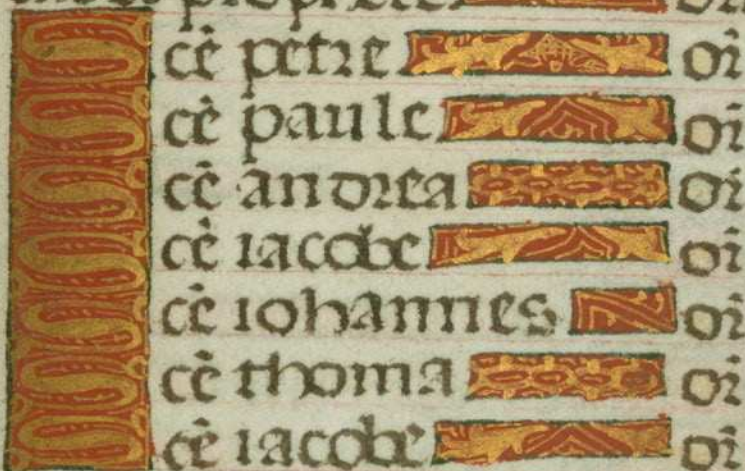 Scē petre or̄
Scē paule or̄
Scē andrea or̄
Scē iacobe or̄
Scē iohannes or̄
Scē thoma or̄
Scē iacobe or̄